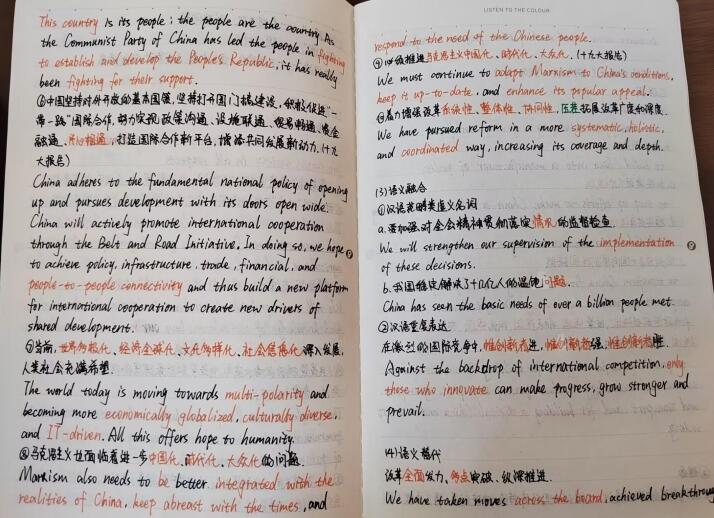 This country is its people; the people are the country. As
the Communist Party of China has led the people in fighting
to establish and develop the People's Republic, it has really
been fighting for their support.
⑥中国坚持对外开放的基本国策,坚持打开国门搞建设,积极促进"一
带一路"国际合作,努力实现政策沟通、设施联通、贸易畅通、资金
融通、民心相通,打造国际合作新平台,增添共同发展新动力。(十九
大报告)
China adheres to the fundamental national policy of opening
up and pursues development with its doors open wide.
China will actively promote international cooperation
through the Belt and Road Initiative. In doing so, we hope
to achieve policy, infrastructure, trade, financial, and
people-to-people connectivity and thus build a new platform
for international cooperation to create new drivers of
shared development.
⑦当前,世界多极化、经济全球化、文化多样化、社会信息化深入发展,
人类社会充满希望.
The world today is moving towards multi-polarity and
becoming more economically globalized, culturally diverse,
and IT-driven. All this offers hope to humanity.
⑧马克思主义也面临着进一步中国化、时代化、大众化的问题.
Marxism also needs to be better integrated with the
realities of China, keep abreast with the times, and
LISTEN TO THE COLOUR
respond to the need of the Chinese people.
推进马克思主义中国化、时代化、大众化.(十九大报告)
We must continue to adapt Marxism to China's conditions,
keep it up-to-date, and enhance its popular appeal.
着力增强改革系统性、整体性、协同性,压茬拓展改革广度和深度.
We have pursued reform in a more systematic, holistic,
and coordinated way, increasing its coverage and depth.
(3)语义融合
①汉语范畴类虚义名词
a.要加强对全会精神贯彻落实情况的监督检查.
We will strengthen our supervision of the implementation
of these decisions.
b.我国稳定解决了十几亿人的温饱问题.
China has seen the basic needs of over a billion people met.
②汉语重复表达
在激烈的国际竞争中,惟创新者进,惟创新者强,惟创新者胜.
Against the backdrop of international competition, only
those who innovate can make progress, grow stronger and
prevail.
(4)语义替代
改革全面发力、多点突破、纵深推进.
We have taken moves across the board, achieved breakthrough